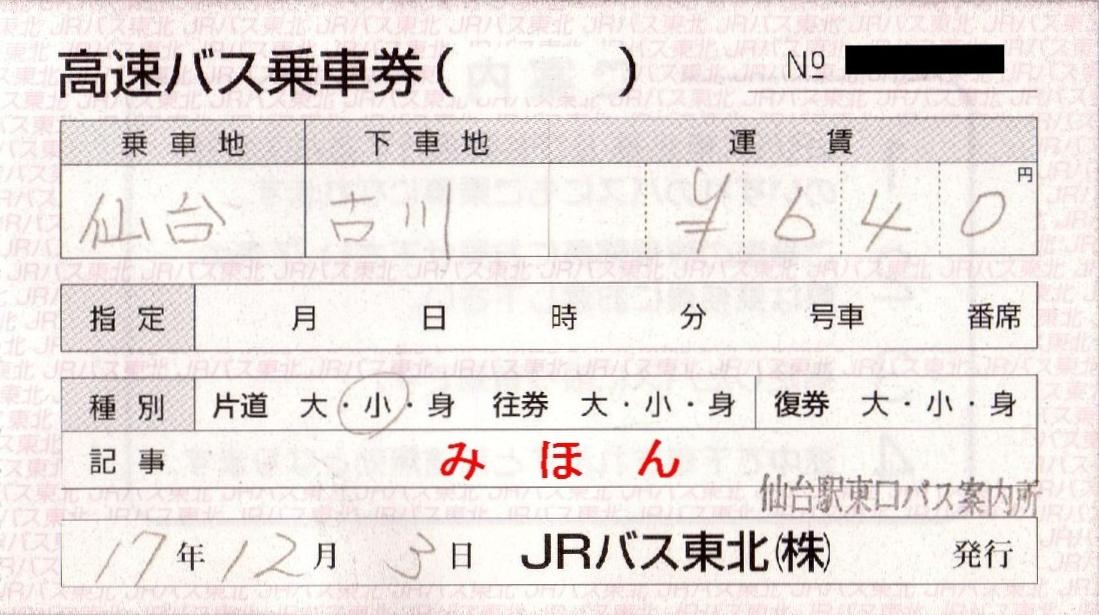 高速バス乗車券(　　　) №
乗車地 下車地 運賃
仙台 古川 ¥640円
指定 月 日 時 分 号車 番席
種別 片道 大・小・身 往券 大・小・身 復券 大・小・身
記事 みほん
仙台駅東口バス案内所
17年12月3日 JRバス東北(株) 発行